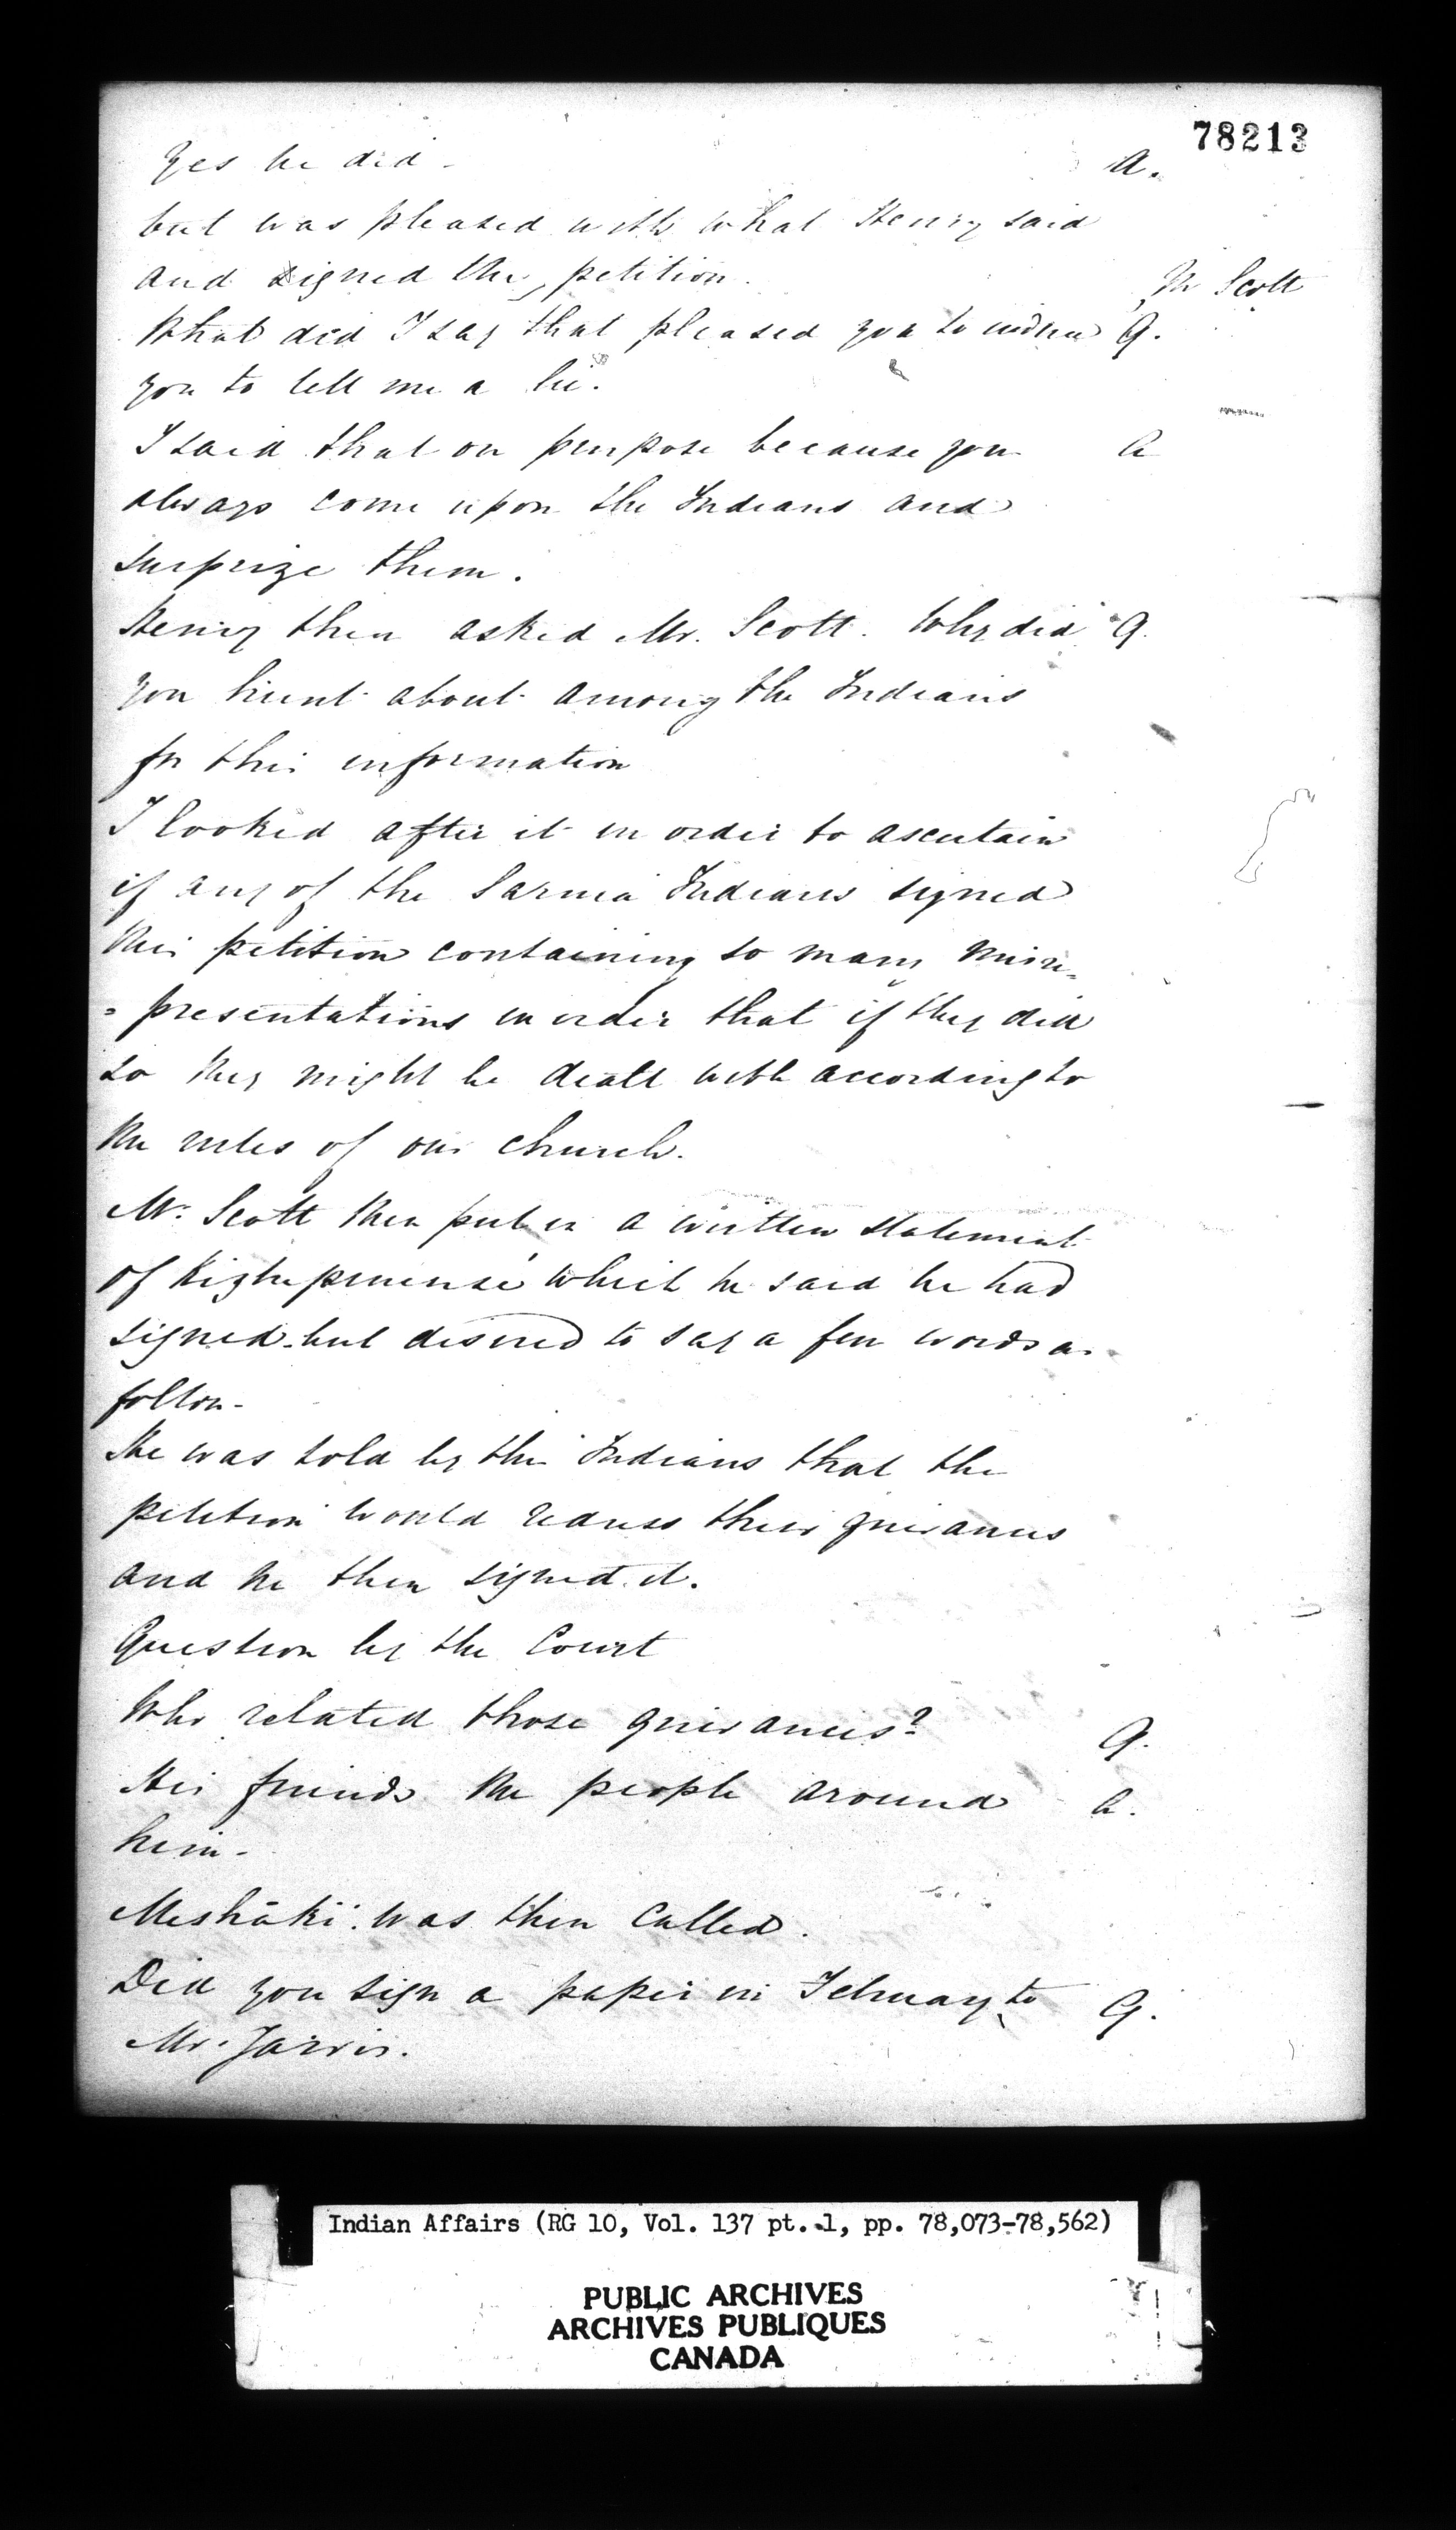 78213
Yes he did - A.
but was pleased with what Henry said
and signed the petition.
Mr Scott
What did I say that pleased you to induce Q.
you to tell me a lie.
I said that on purpose because you A
always come upon the Indians and
surprize them.
Henry then asked Mr. Scott. Why did Q.
you hunt about among the Indians
for this information
I looked after it in order to ascertain
if any of the Sarnia Indians signed
this petition containing so many misre-
=presentations in order that if they did
so they might be dealt with according to
the rules of our church.
Mr. Scott then put in a written statement
of which he said he had
signed but desired to say a few words as
follow -
He was told by the Indians that the
petition would redress their grievances
and he then signed it.
Question by the Court
Who related those grievances? Q.
His friends the people around A.
him -
Meshāki was then called.
Did you sign a paper in February to Q.
Mr. Jarvis.
Indian Affairs (RG 10, Vol. 137 pt. 1, pp. 78,073-78,562)
PUBLIC ARCHIVES
ARCHIVES PUBLIQUES
CANADA